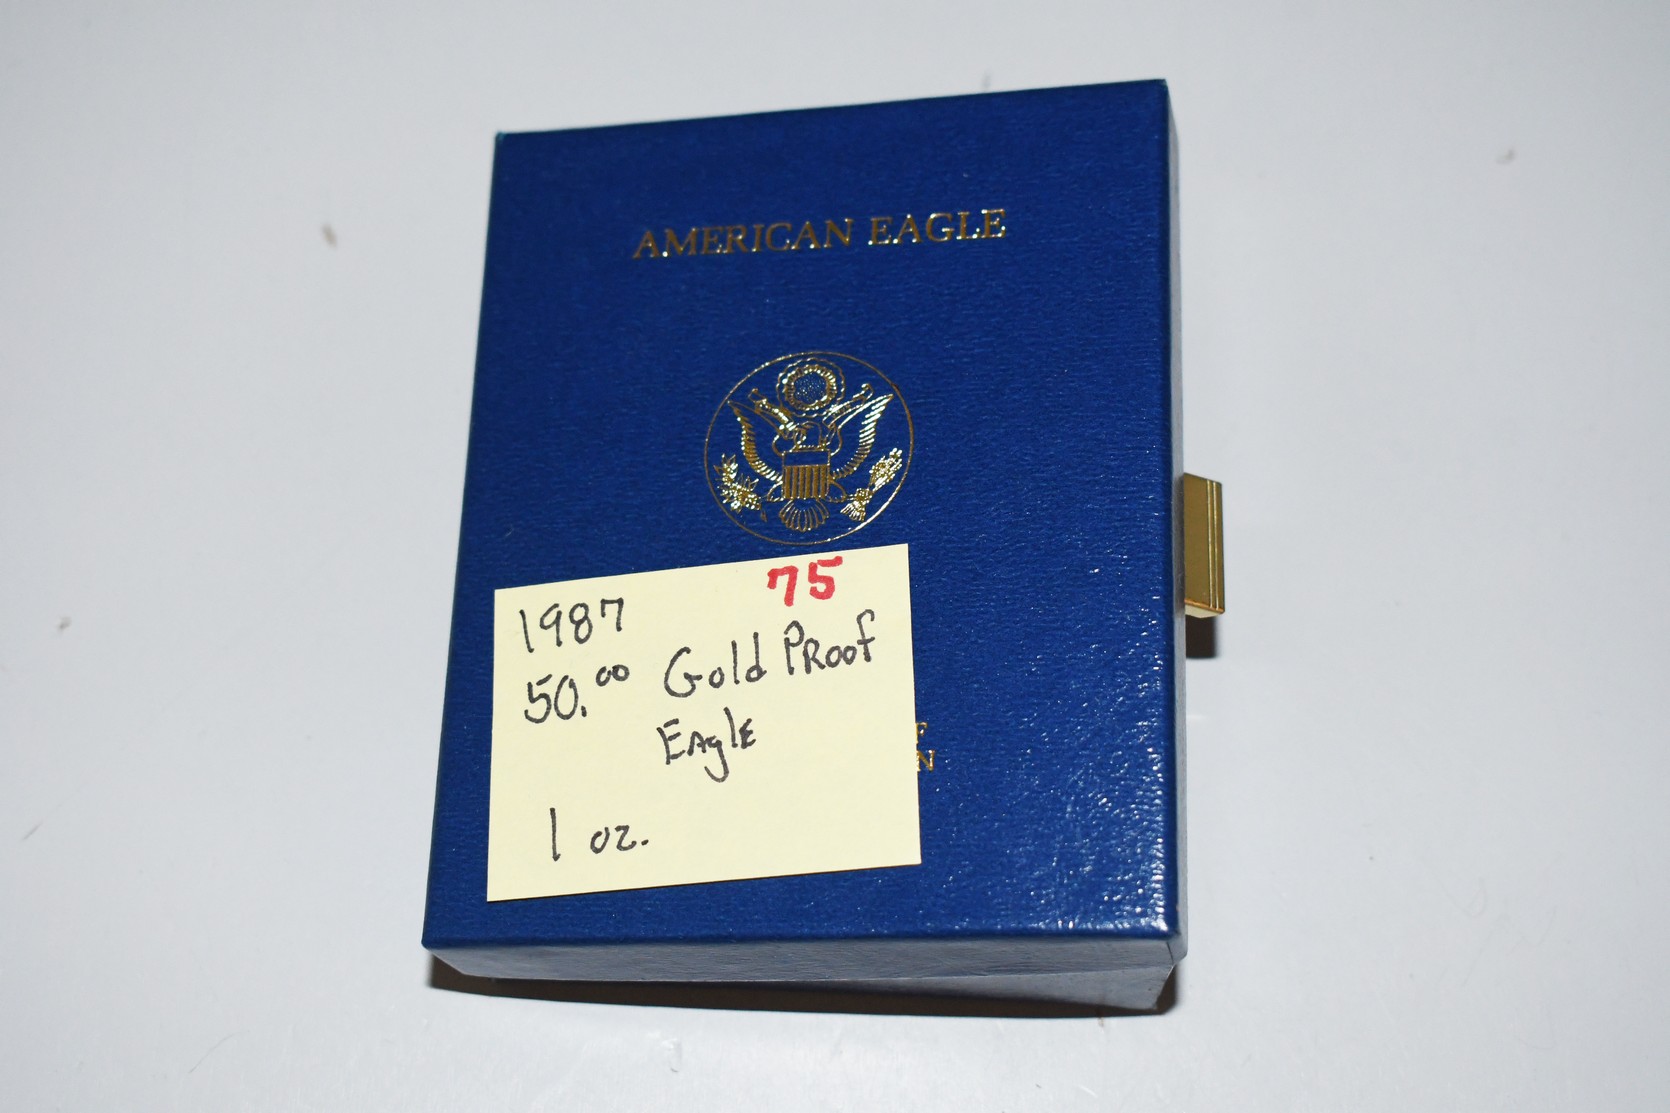 AMERICAN EAGLE
75
1987
50.00 Gold Proof
Eagle
1 oz.